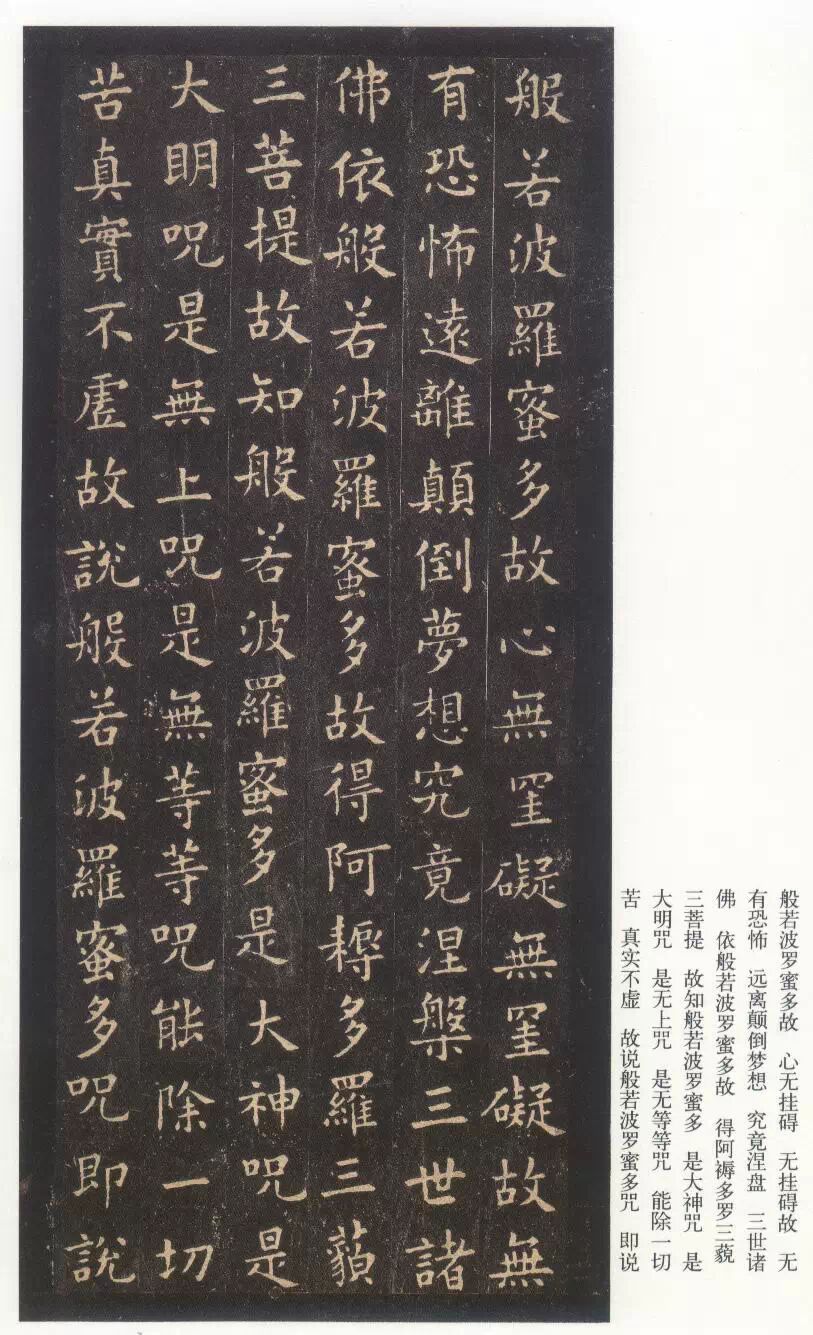 般若波羅蜜多故心無罣礙無罣礙故無
有恐怖遠離顛倒夢想究竟涅槃三世諸
佛依般若波羅蜜多故得阿耨多羅三藐
三菩提故知般若波羅蜜多是大神咒是
大明咒是無上咒是無等等咒能除一切
苦真實不虛故說般若波羅蜜多咒即說
般若波罗蜜多故 心无挂碍 无挂碍故 无
有恐怖 远离颠倒梦想 究竟涅盘 三世诸
佛 依般若波罗蜜多故 得阿褥多罗三藐
三菩提 故知般若波罗蜜多 是大神咒 是
大明咒 是无上咒 是无等等咒 能除一切
苦 真实不虚 故说般若波罗蜜多咒 即说